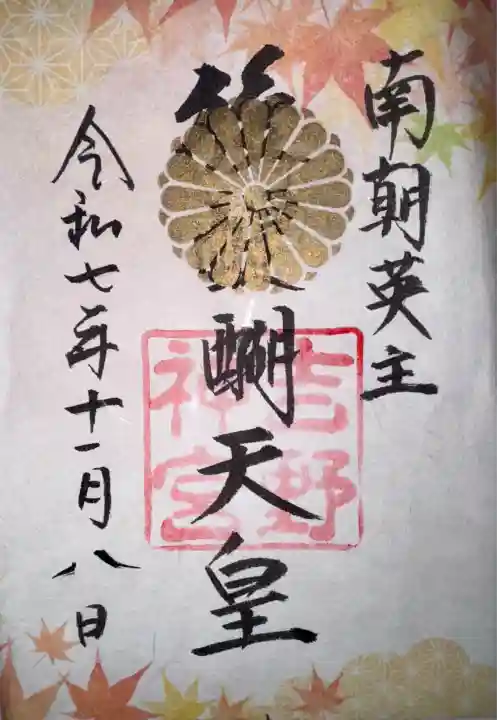 南朝英主
醐天皇
吉野
神宮
令和七年十一月八日